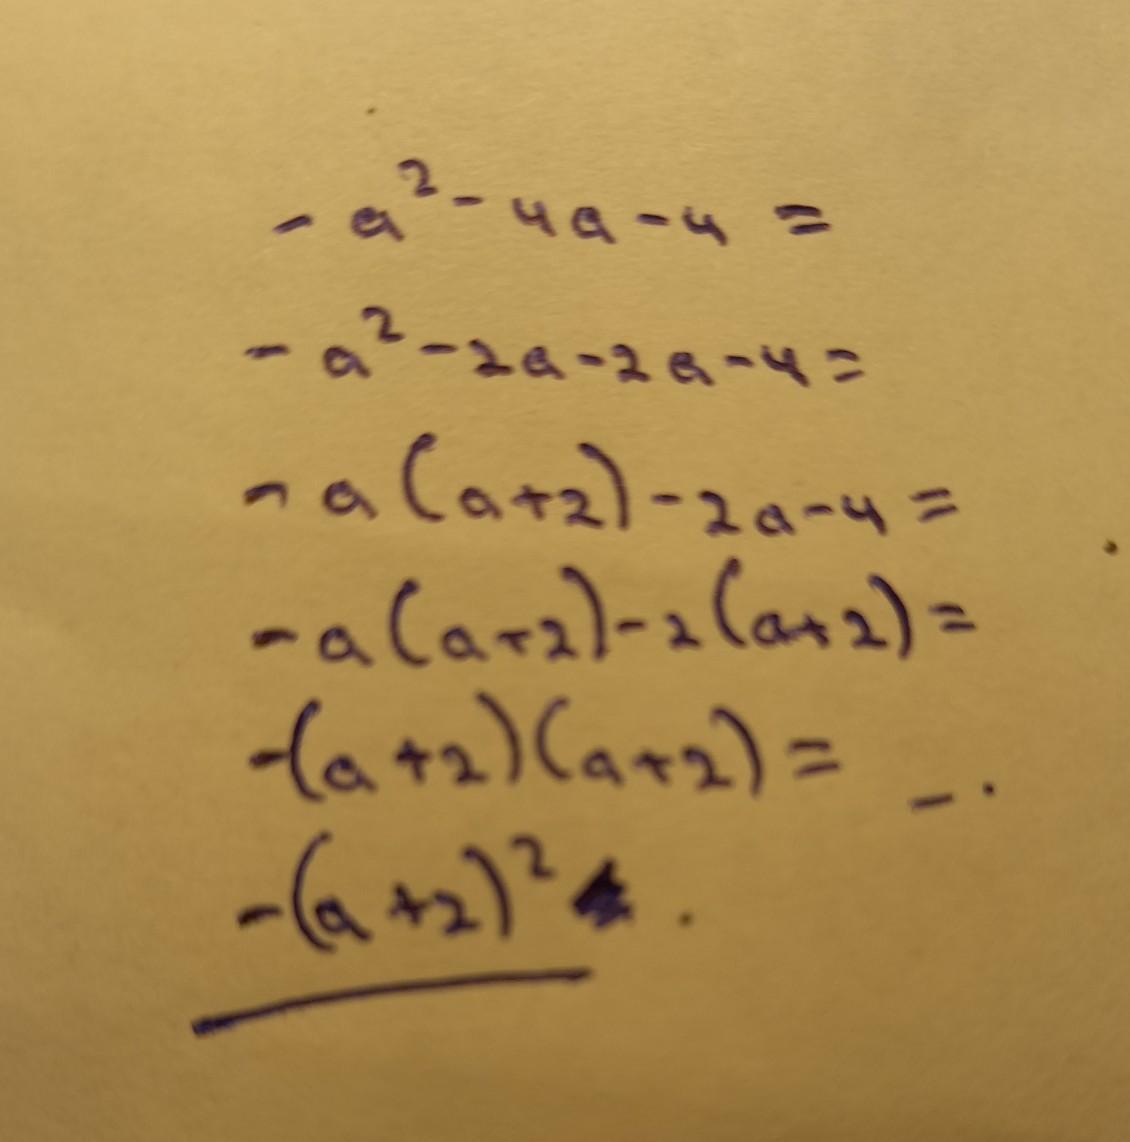 - a² - 4a - 4 =
- a² - 2a - 2a - 4 =
- a (a+2) - 2a - 4 =
- a (a+2) - 2 (a+2) =
-(a+2)(a+2) =
-(a+2)² .